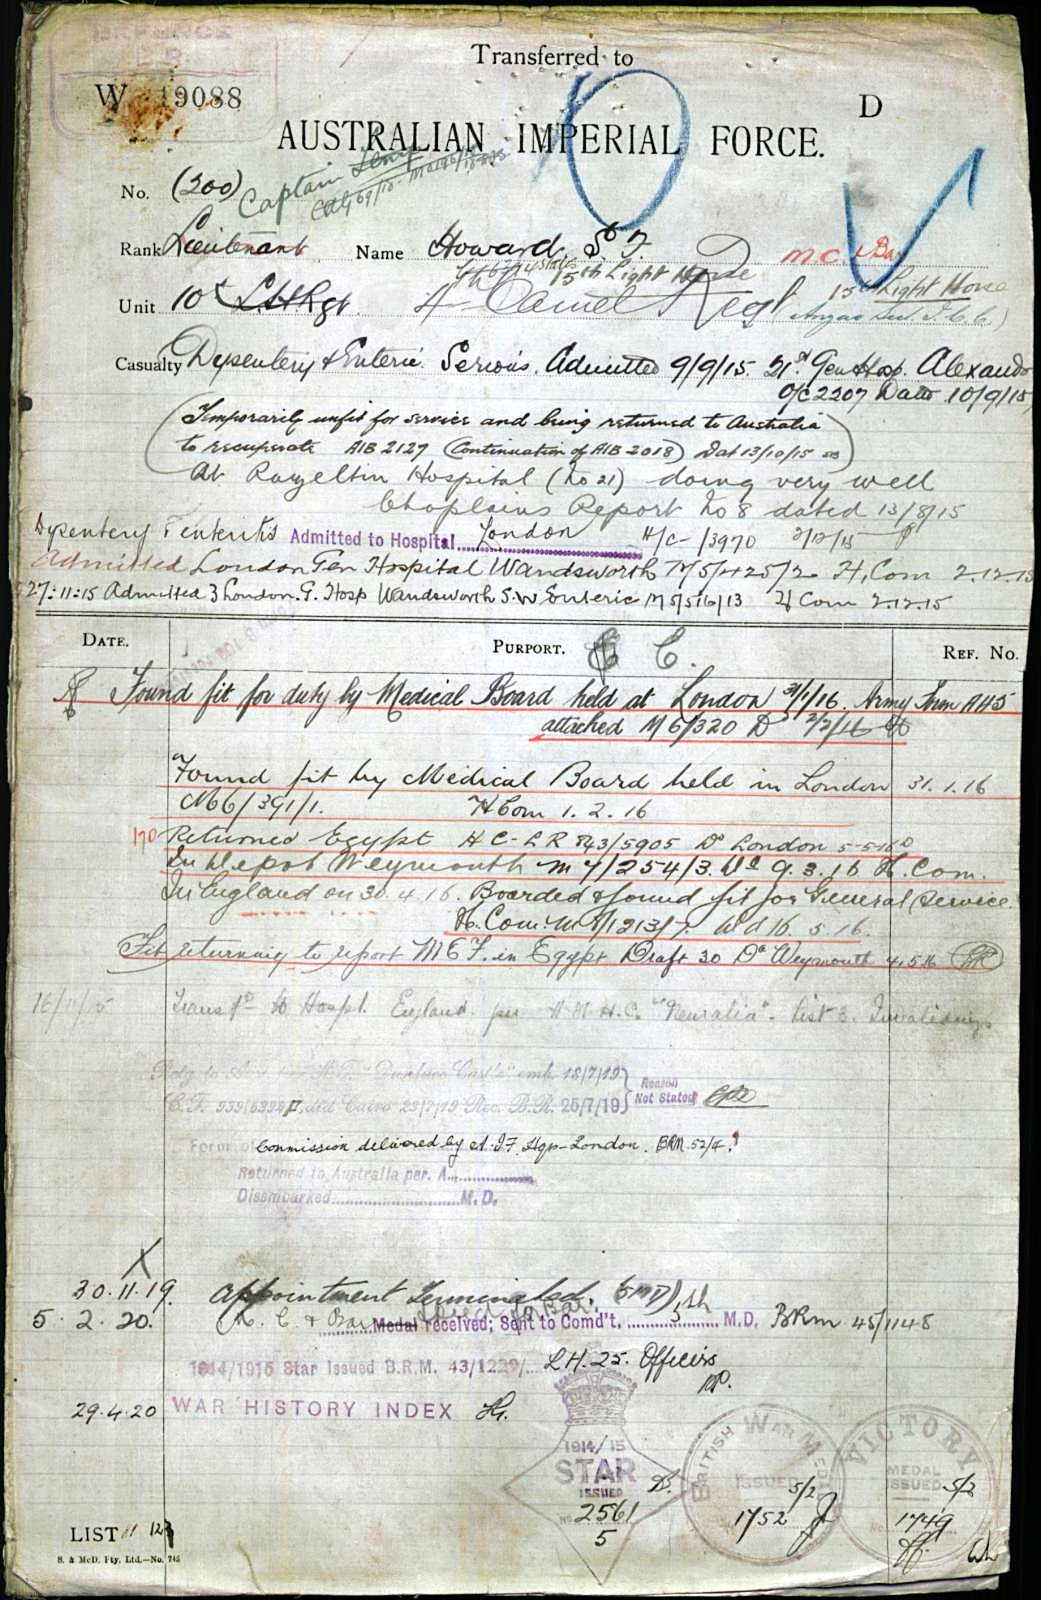 Transferred to
W 19088
D
AUSTRALIAN IMPERIAL FORCE.
No. (200) Captain
Rank Lieutenant Name Howard, S F. M C & Bar
15th Light Horse
Unit 10th L H Rgt. 4th Camel Regt 15th Light Horse
Casualty Dysentery & Enteric Serious. Admitted 9/9/15. 21st Gen Hosp. Alexand
O/C 2207 Date 10/9/15
(Temporarily unfit for service and being returned to Australia
to recuperate AIB 2127 (Continuation of AIB 2018) Dat 13/10/15
At Razeltin Hospital (No 21) doing very well
Chaplains Report No 8 dated 13/8/15
Dysentery Admitted to Hospital London H/C- /3970 2/12/15
Admitted London Gen Hospital Wandsworth M/5/425/2 H, Com 2.12.15
27.11.15 Admitted 3 London. G. Hosp Wandsworth Enteric M/5/516/13 H Com 2.12.15
DATE. PURPORT. C. REF. NO.
Found fit for duty by Medical Board held at London 31/1/16. Army Form A45
attached M 6/320 D 2/2/16
Found fit by Medical Board held in London 31.1.16
M6/391/1. H Com 1.2.16
170 Returned Egypt H C-L R 843/5905 Dd London
In Depot Weymouth M 7/254/3. 9.3.16 H. Com.
In England on 30.4.16. Boarded & found fit for General Service.
H. Com. 16.5.16.
Fit returning to report M E F. in Egypt Draft 30 Dd Weymouth 4.5.16
16/11/15 Transfd to Hospl. England. per "Neuralia". List 3. Invalidings
emb 18/7/19 Reason
Cairo 23/7/19 Rec. B.R. 25/7/19 Not Stated
Form of Commission delivered by A.I.F. Hqs- London. BRM 52/4.
Returned to Australia per. A
Disembarked M.D.
30.11.19. Appointment Terminated. (5 MD)
5.2.20. M. C. & Bar Medal received; Sent to Comd't, 5th M.D. BRM 45/1148
1914/1915 Star Issued B.R.M. 43/1229/ L H. 25. Officers
29.4.20 WAR HISTORY INDEX
1914/15
STAR
ISSUED
No 2561
5
BRITISH WAR MEDAL
ISSUED
5/2
1752
VICTORY
MEDAL
ISSUED 5/2
No. 1749
LIST
S. & McD. Pty. Ltd.—No. 745